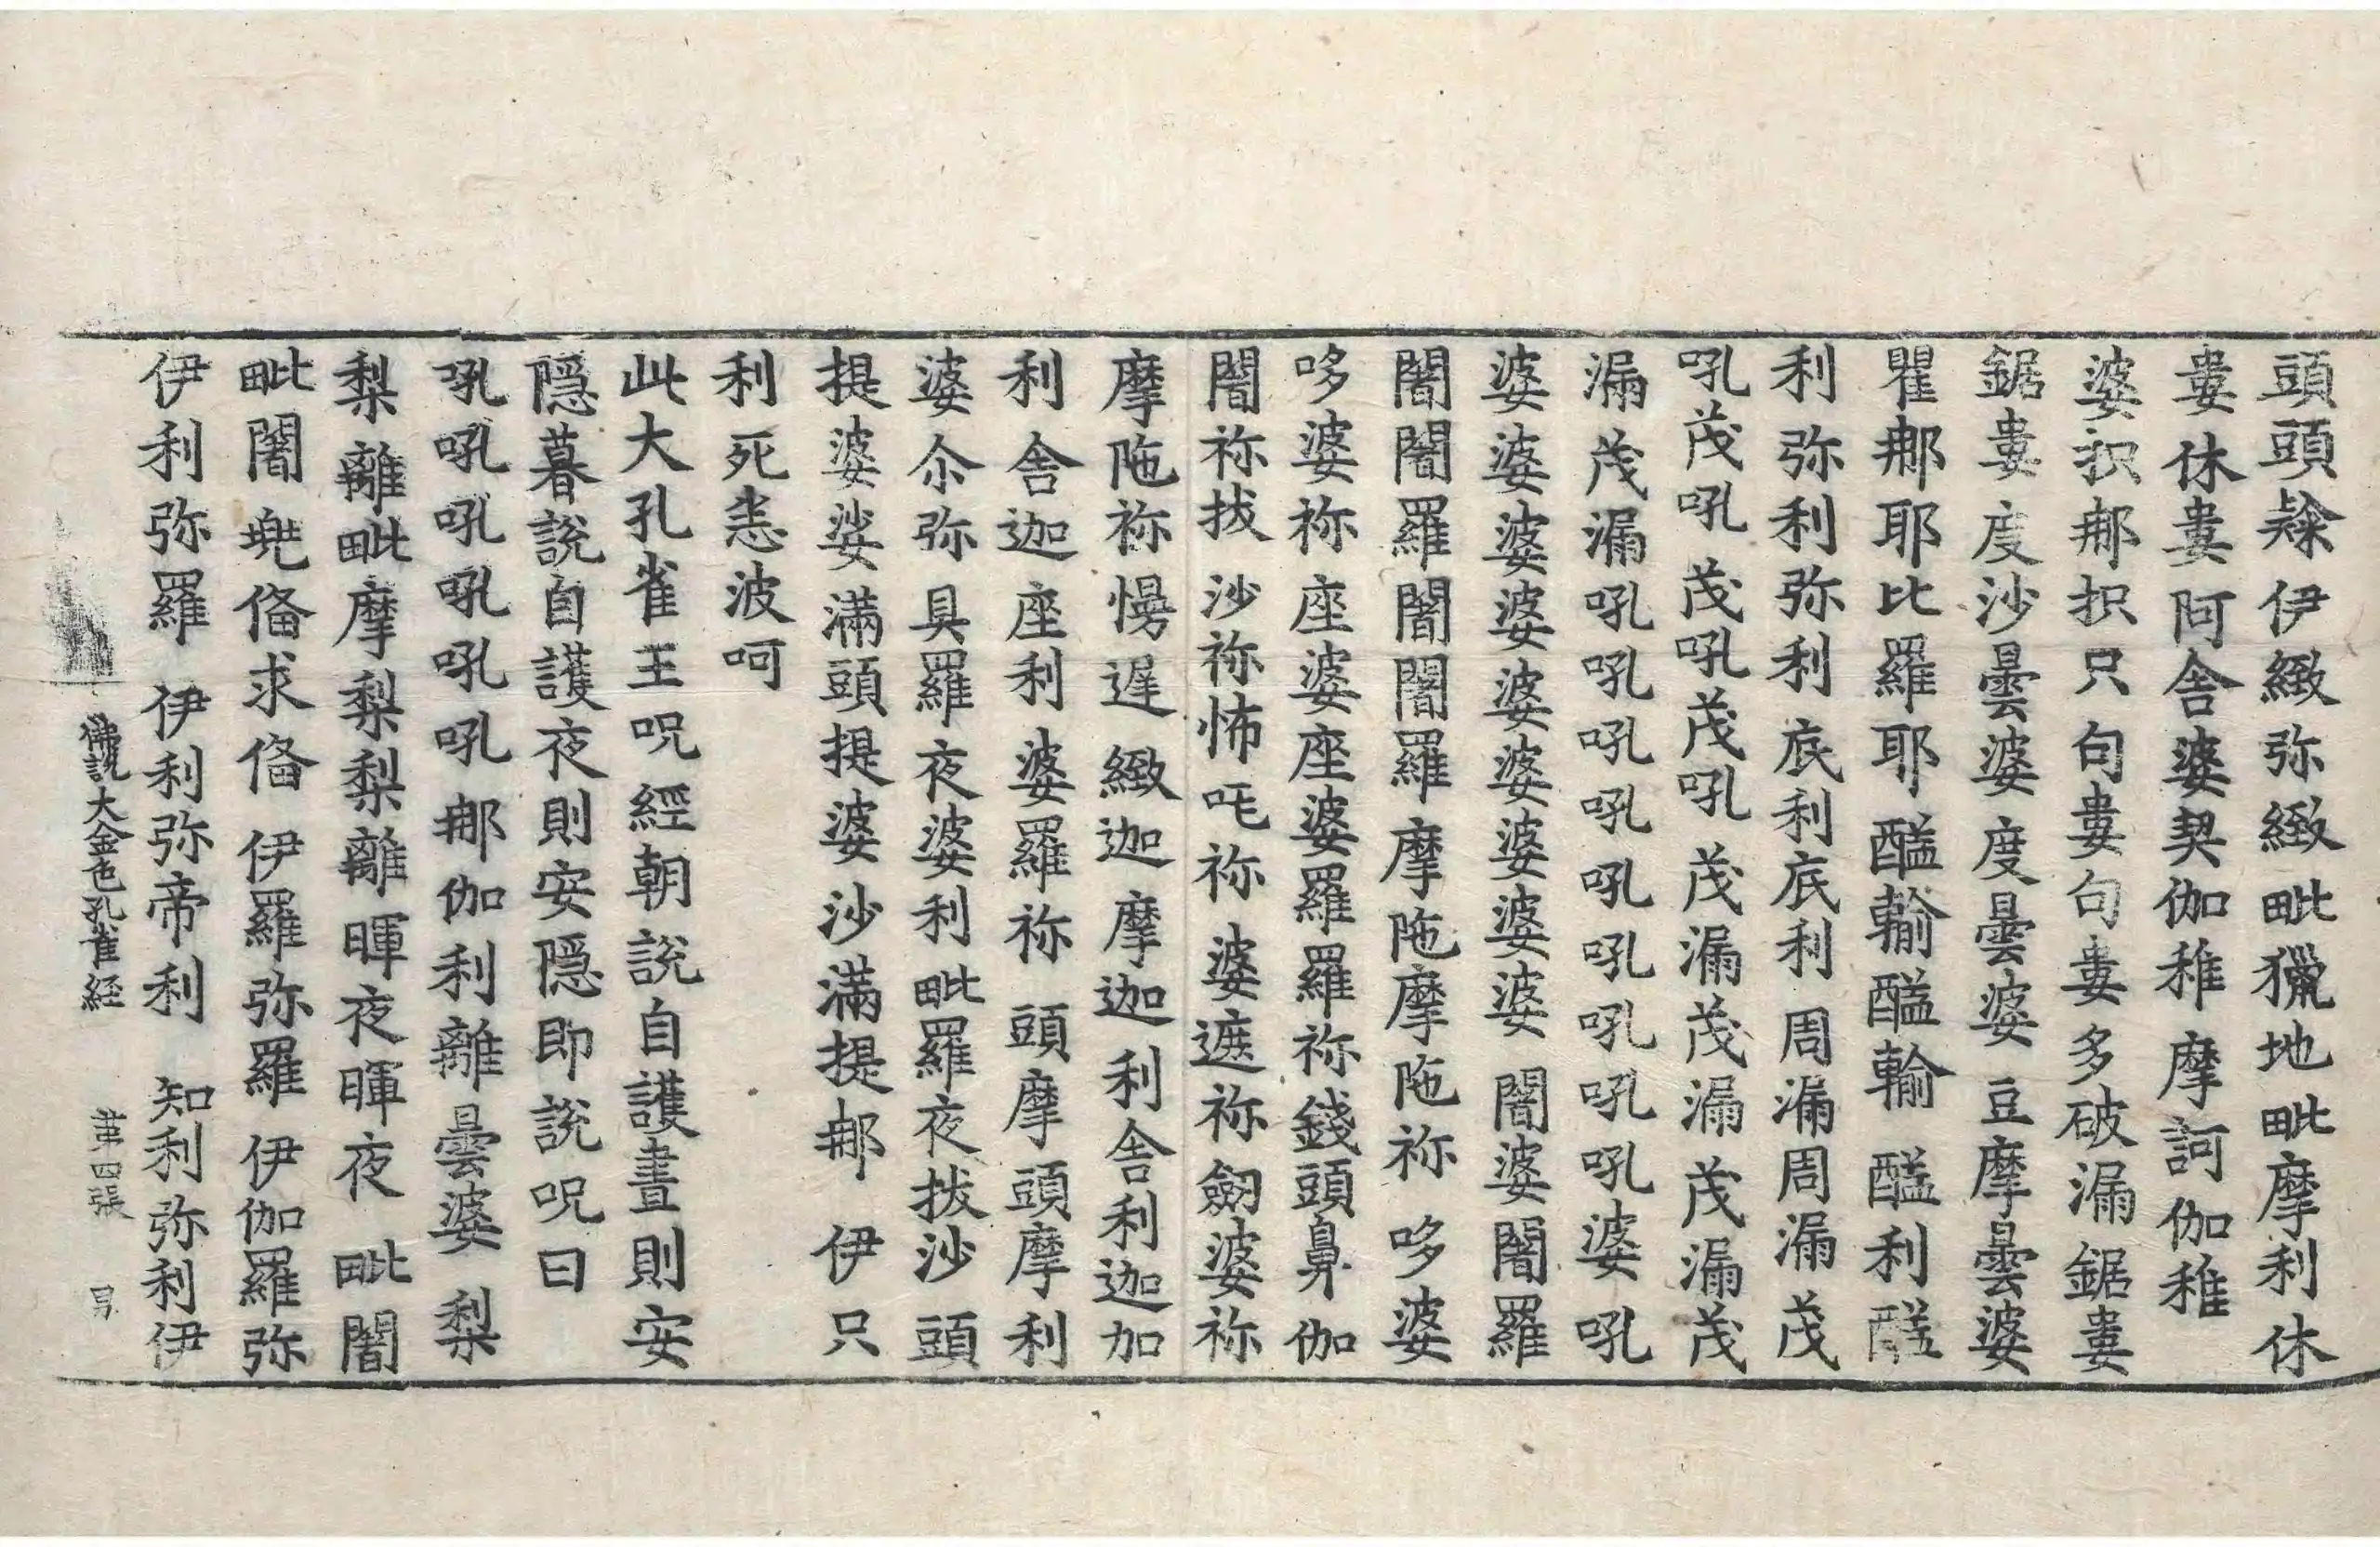 頭頭㯲伊緻弥緻毗獵地毗摩利休
婁休婁阿舍婆契伽稚摩訶伽稚
婆抧那抧只句婁句婁多破漏鋸婁
鋸婁度沙曇婆度曇婆豆摩曇婆
瞿那耶比羅耶醯輸醯輸醯利醯
利弥利弥利底利底利周漏周漏茂
吼茂吼茂吼茂吼茂漏茂漏茂漏茂
漏茂漏吼吼吼吼吼吼吼吼婆吼
婆婆婆婆婆婆婆婆婆闇婆闇羅
闇闇羅闇闇羅摩陁摩陁祢哆婆
哆婆祢座婆座婆羅羅祢錢頭鼻伽
闇祢拔沙祢怖吒祢婆遮祢劒婆祢
摩陁祢慢遟緻迦摩迦利舍利迦加
利舍迦座利婆羅祢頭摩頭摩利
婆尒弥具羅夜婆利毗羅夜拔沙頭
提婆娑滿頭提婆沙滿提那伊只
利死恚波呵
此大孔雀王呪經朝說自護晝則安
隱暮說自護夜則安隱即說呪曰
吼吼吼吼吼吼那伽利離曇婆梨
梨離毗摩梨梨離暉夜暉夜毗闇
毗闇兠俻求俻伊羅弥羅伊伽羅弥
伊利弥羅伊利弥帝利知利弥利伊
佛說大金色孔雀経 苐四張